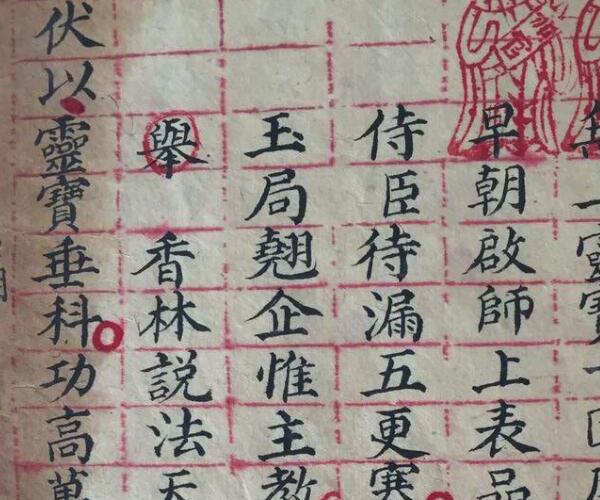 一靈寶
早朝啟師上表品
侍臣待漏五更寒
玉局翹企惟主教
舉 香林説法天
伏以靈寶垂科功高萬